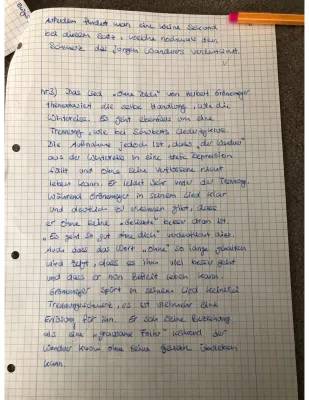 Außerdem findet man eine kleine Sekund
bei diesem Satz, welche nochmals den
Schmerz des jungen Wanderers verdeutlicht.
Nr 3) Das Lied "Ohne Dich" von Herbert Grönemeyer
thematisiert die selbe Handlung, wie die
Winterreise. Es geht ebenfalls um eine
Trennung, wie bei Schuberts Liederzyklus.
Die Aufnahme jedoch ist, dass "der Wanderer"
aus der Winterreise in eine Depression
fällt und ohne seine Verflossene nicht
leben kann. Er leidet sehr unter der Trennung.
Während Grönemeyer in seinem Lied klar
und deutlich zu erkennen gibt, dass
er ohne seine "Geliebte" besser dran ist.
"Es geht so gut ohne dich" verdeutlicht dies.
Auch dass das Wort "Ohne" so lange gehalten
wird zeigt, dass es ihm viel besser geht
und dass er nun befreit leben kann.
Grönemeyer spürt in seinem Lied keinerlei
Trennungsschmerz, es ist vielmehr eine
Erlösung für ihn. Er sah seine Beziehung
als eine "grausame Folter" während der
Wanderer kaum ohne seine
kann.